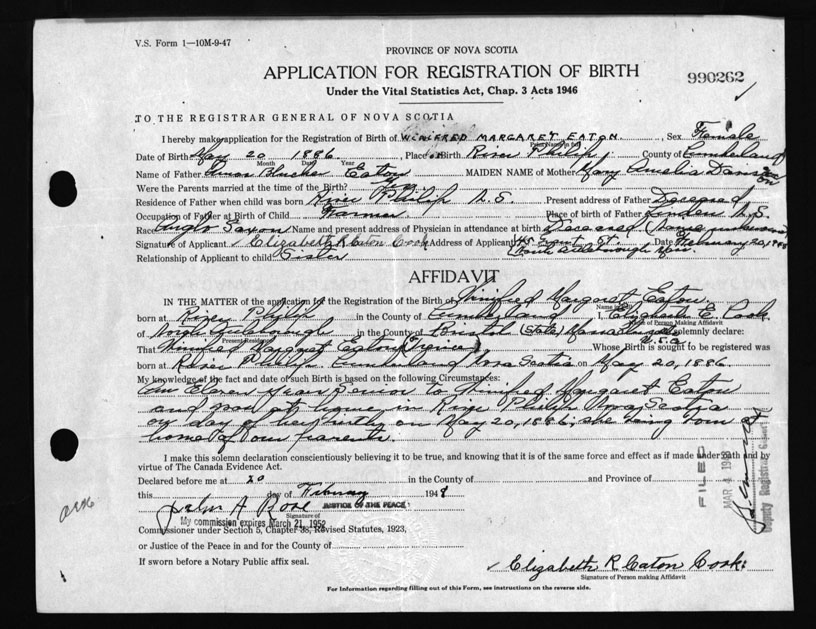 V.S. Form 1—10M-9-47
PROVINCE OF NOVA SCOTIA
APPLICATION FOR REGISTRATION OF BIRTH
990262
Under the Vital Statistics Act, Chap. 3 Acts 1946
TO THE REGISTRAR GENERAL OF NOVA SCOTIA
I hereby make application for the Registration of Birth of WINIFRED MARGARET EATON, Sex Female
Date of Birth May 20 1886, Place of Birth River Philip, County of Cumberland
Month Date Year
Name of Father Blucher Eaton MAIDEN NAME of Mother Mary Amelia
Were the Parents married at the time of the Birth? Yes
Residence of Father when child was born River Philip N.S. Present address of Father Deceased
Occupation of Father at Birth of Child Farmer Place of birth of Father N.S.
Race Anglo Saxon Name and present address of Physician in attendance at birth Deceased
Signature of Applicant Elizabeth R Eaton Cook Address of Applicant St. Date February 20, 1948
Relationship of Applicant to child Sister
AFFIDAVIT
IN THE MATTER of the application for the Registration of the Birth of Winifred Margaret Eaton
born at River Philip in the County of Cumberland I, Elizabeth E. Cook
Name of Person Making Affidavit
of in the County of Bristol (State) solemnly declare:
Present Residence
U.S.A
That Winifred Margaret Eaton Whose Birth is sought to be registered was
born at River Philip Cumberland Nova Scotia on May 20, 1886.
My knowledge of the fact and date of such Birth is based on the following Circumstances:
Eleven years senior to Winifred Margaret Eaton
and was at home in River Philip Nova Scotia
on day of her birth on May 20, 1886, she being born at
home of our parents.
I make this solemn declaration conscientiously believing it to be true, and knowing that it is of the same force and effect as if made under oath and by
virtue of The Canada Evidence Act.
Declared before me at 20 in the County of and Province of
this day of February 1948
John A JUSTICE OF THE PEACE
Signature of
My commission expires March 21, 1952
Commissioner under Section 5, Chapter 38, Revised Statutes, 1923,
or Justice of the Peace in and for the County of
If sworn before a Notary Public affix seal.
Elizabeth R Eaton Cook
Signature of Person making Affidavit
For Information regarding filling out of this Form, see instructions on the reverse side.
FILED
MAR 4
Deputy Registrar General